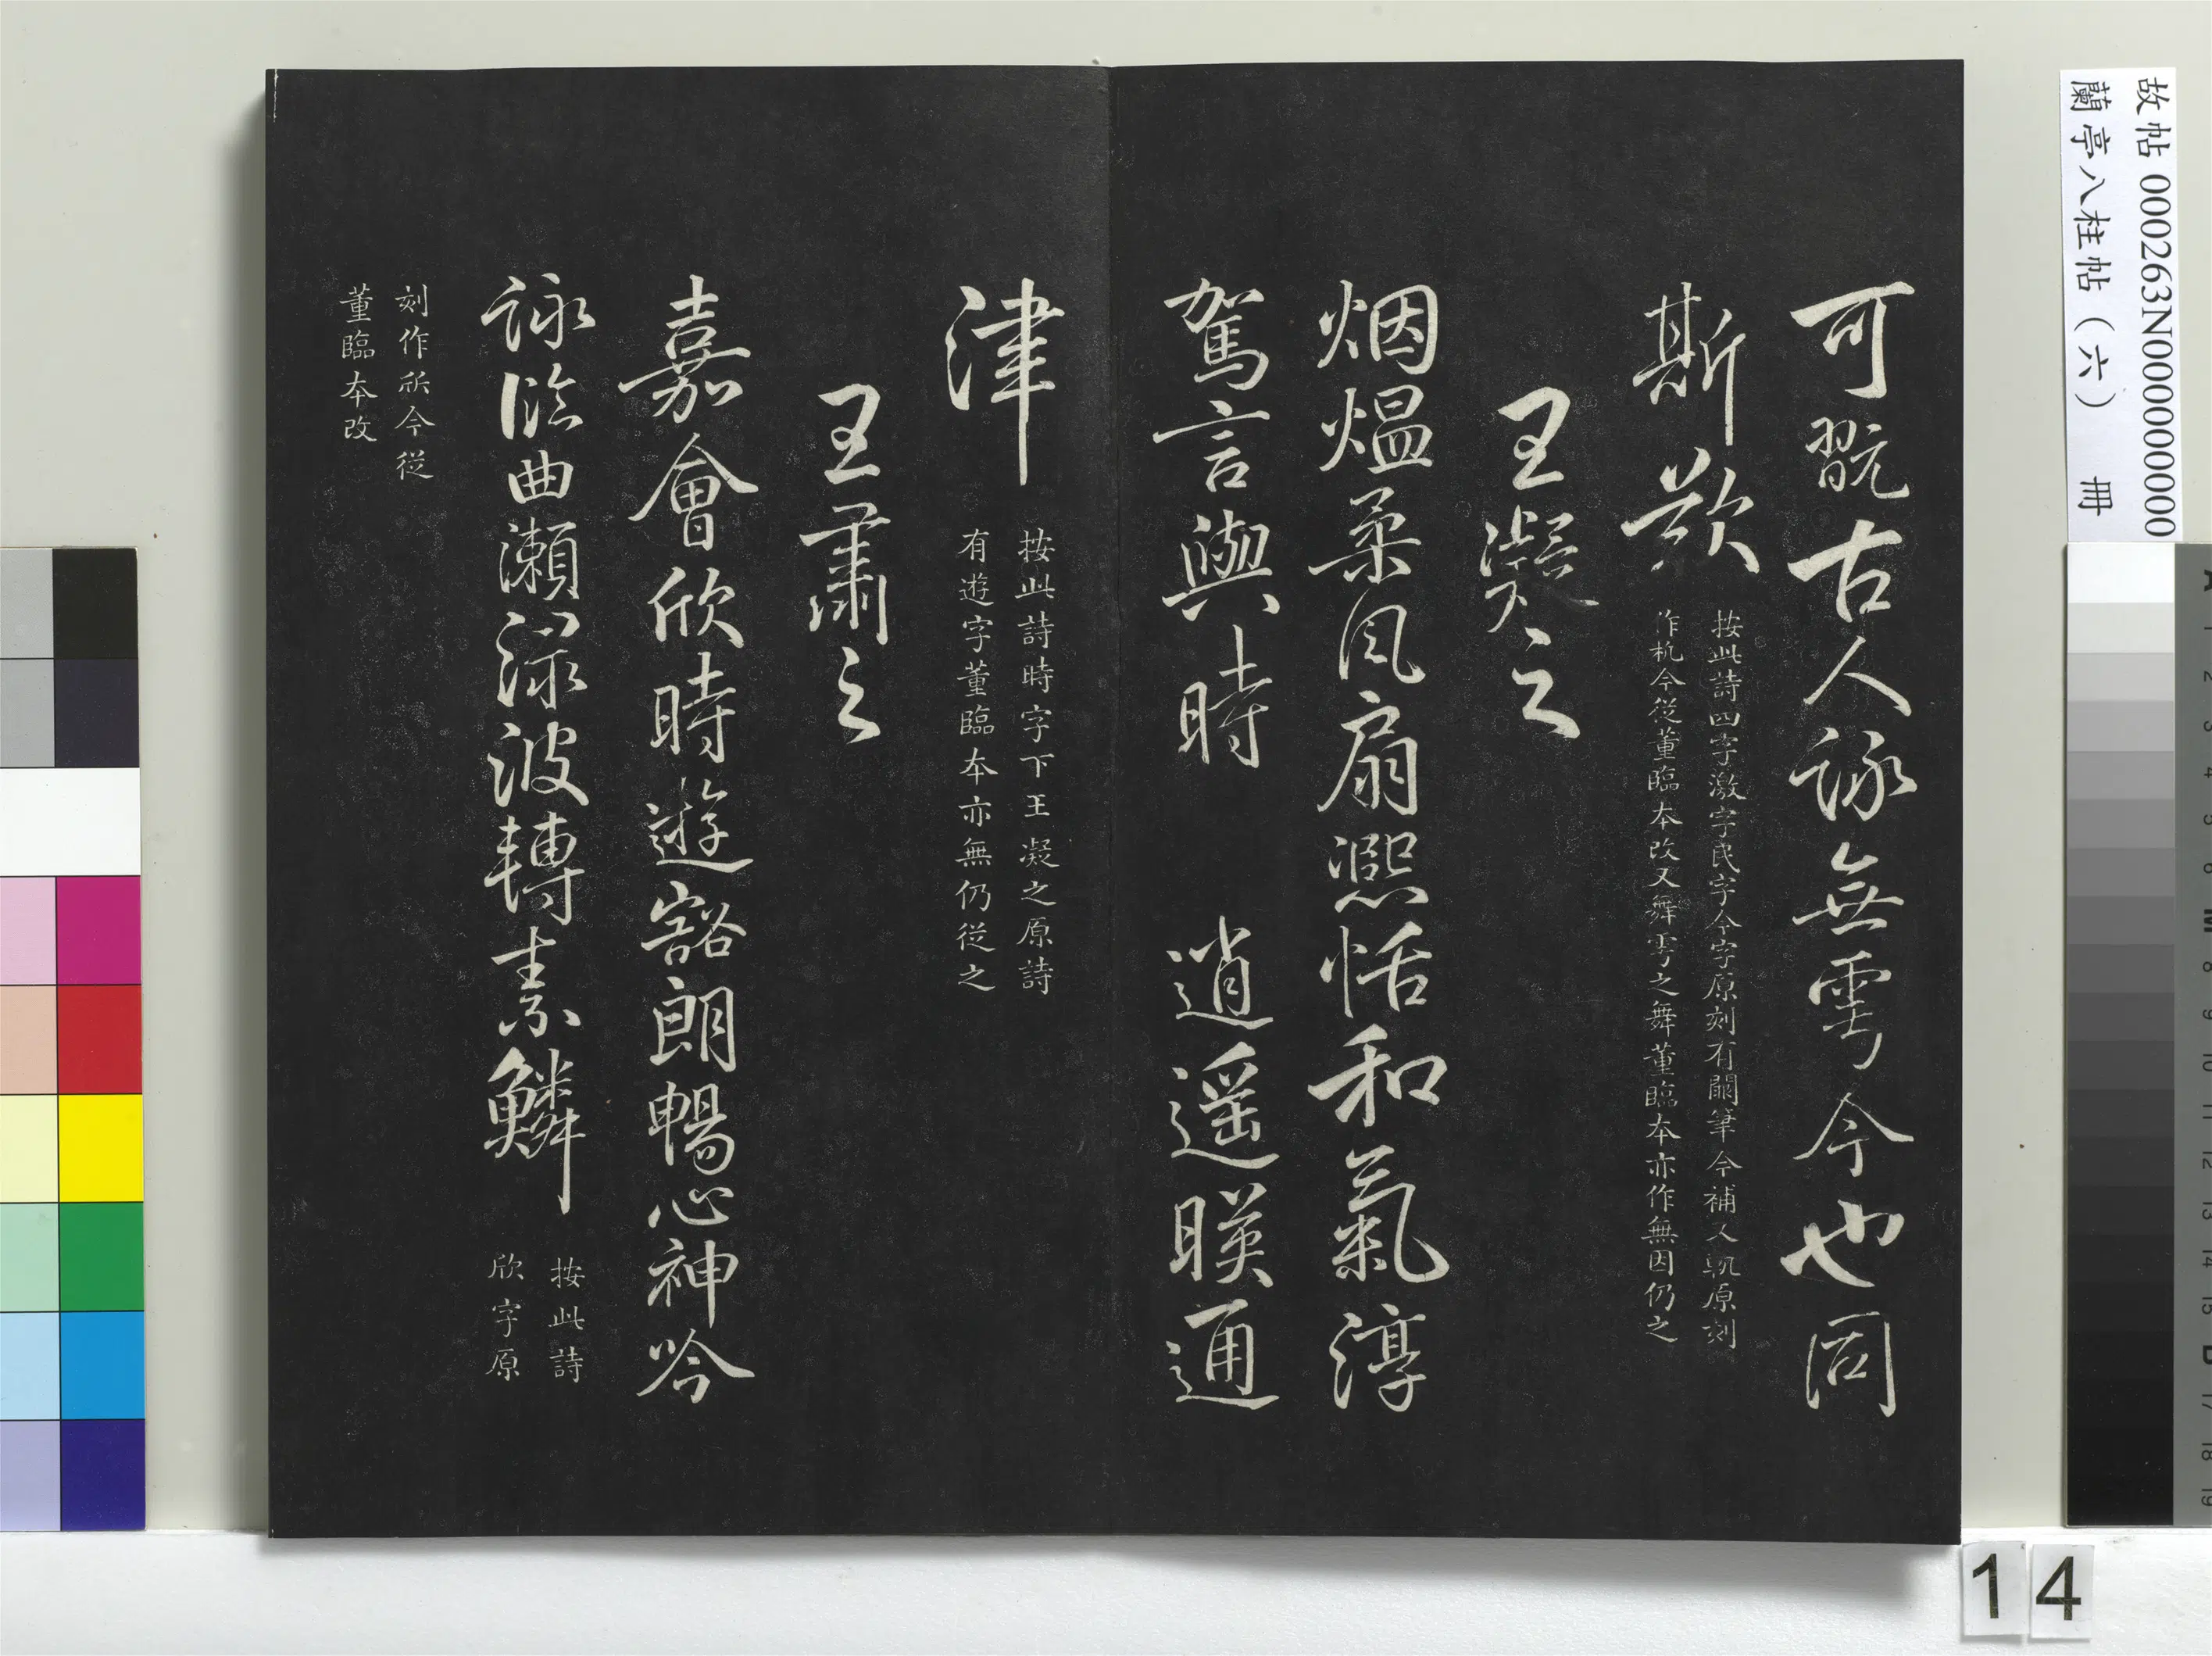 可翫古人詠無雩今也同
斯歎
按此詩四字激字民字今字原刻有闕筆今補又軏原刻
作杌今從董臨本改又舞雩之舞董臨本亦作無因仍之
王凝之
烟煴柔風扇凞恬和氣淳
駕言興時 逍遥暎通
津
按此詩時字下王凝之原詩
有遊字董臨本亦無仍從之
王肅之
嘉會欣時遊豁朗暢心神吟
詠臨曲瀬渌波轉素鱗
按此詩
欣字原
刻作欣今從
董臨本改
故帖000263N000000000
蘭亭八柱帖(六) 冊
14